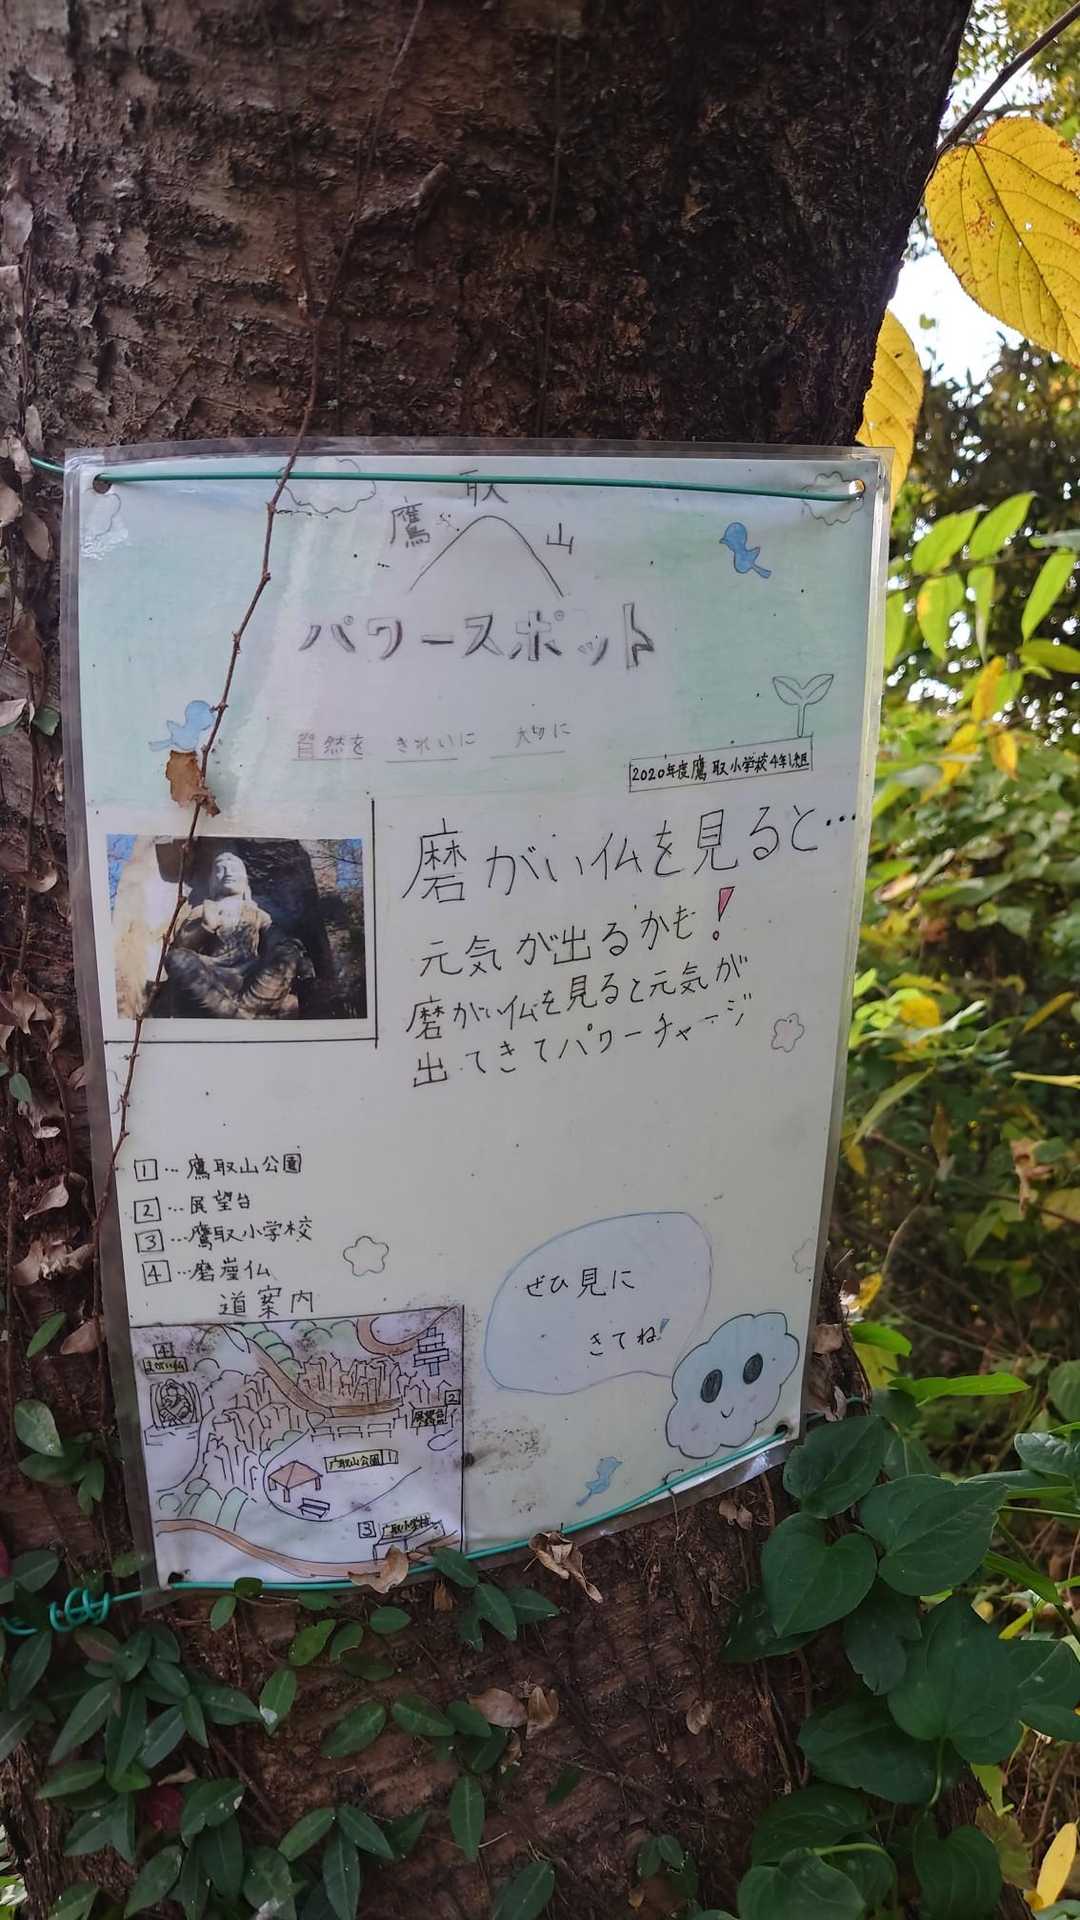 鷹取山
パワースポット
自然を きれいに 大切に
2020年度鷹取小学校4年1組
磨がい仏を見ると…
元気が出るかも!
磨がい仏を見ると元気が
出てきてパワーチャージ
1…鷹取山公園
2…展望台
3…鷹取小学校
4…磨崖仏
道案内
4
まがい仏
2
展望台
鷹取山公園 1
3 鷹取小学校
ぜひ見に
きてね!